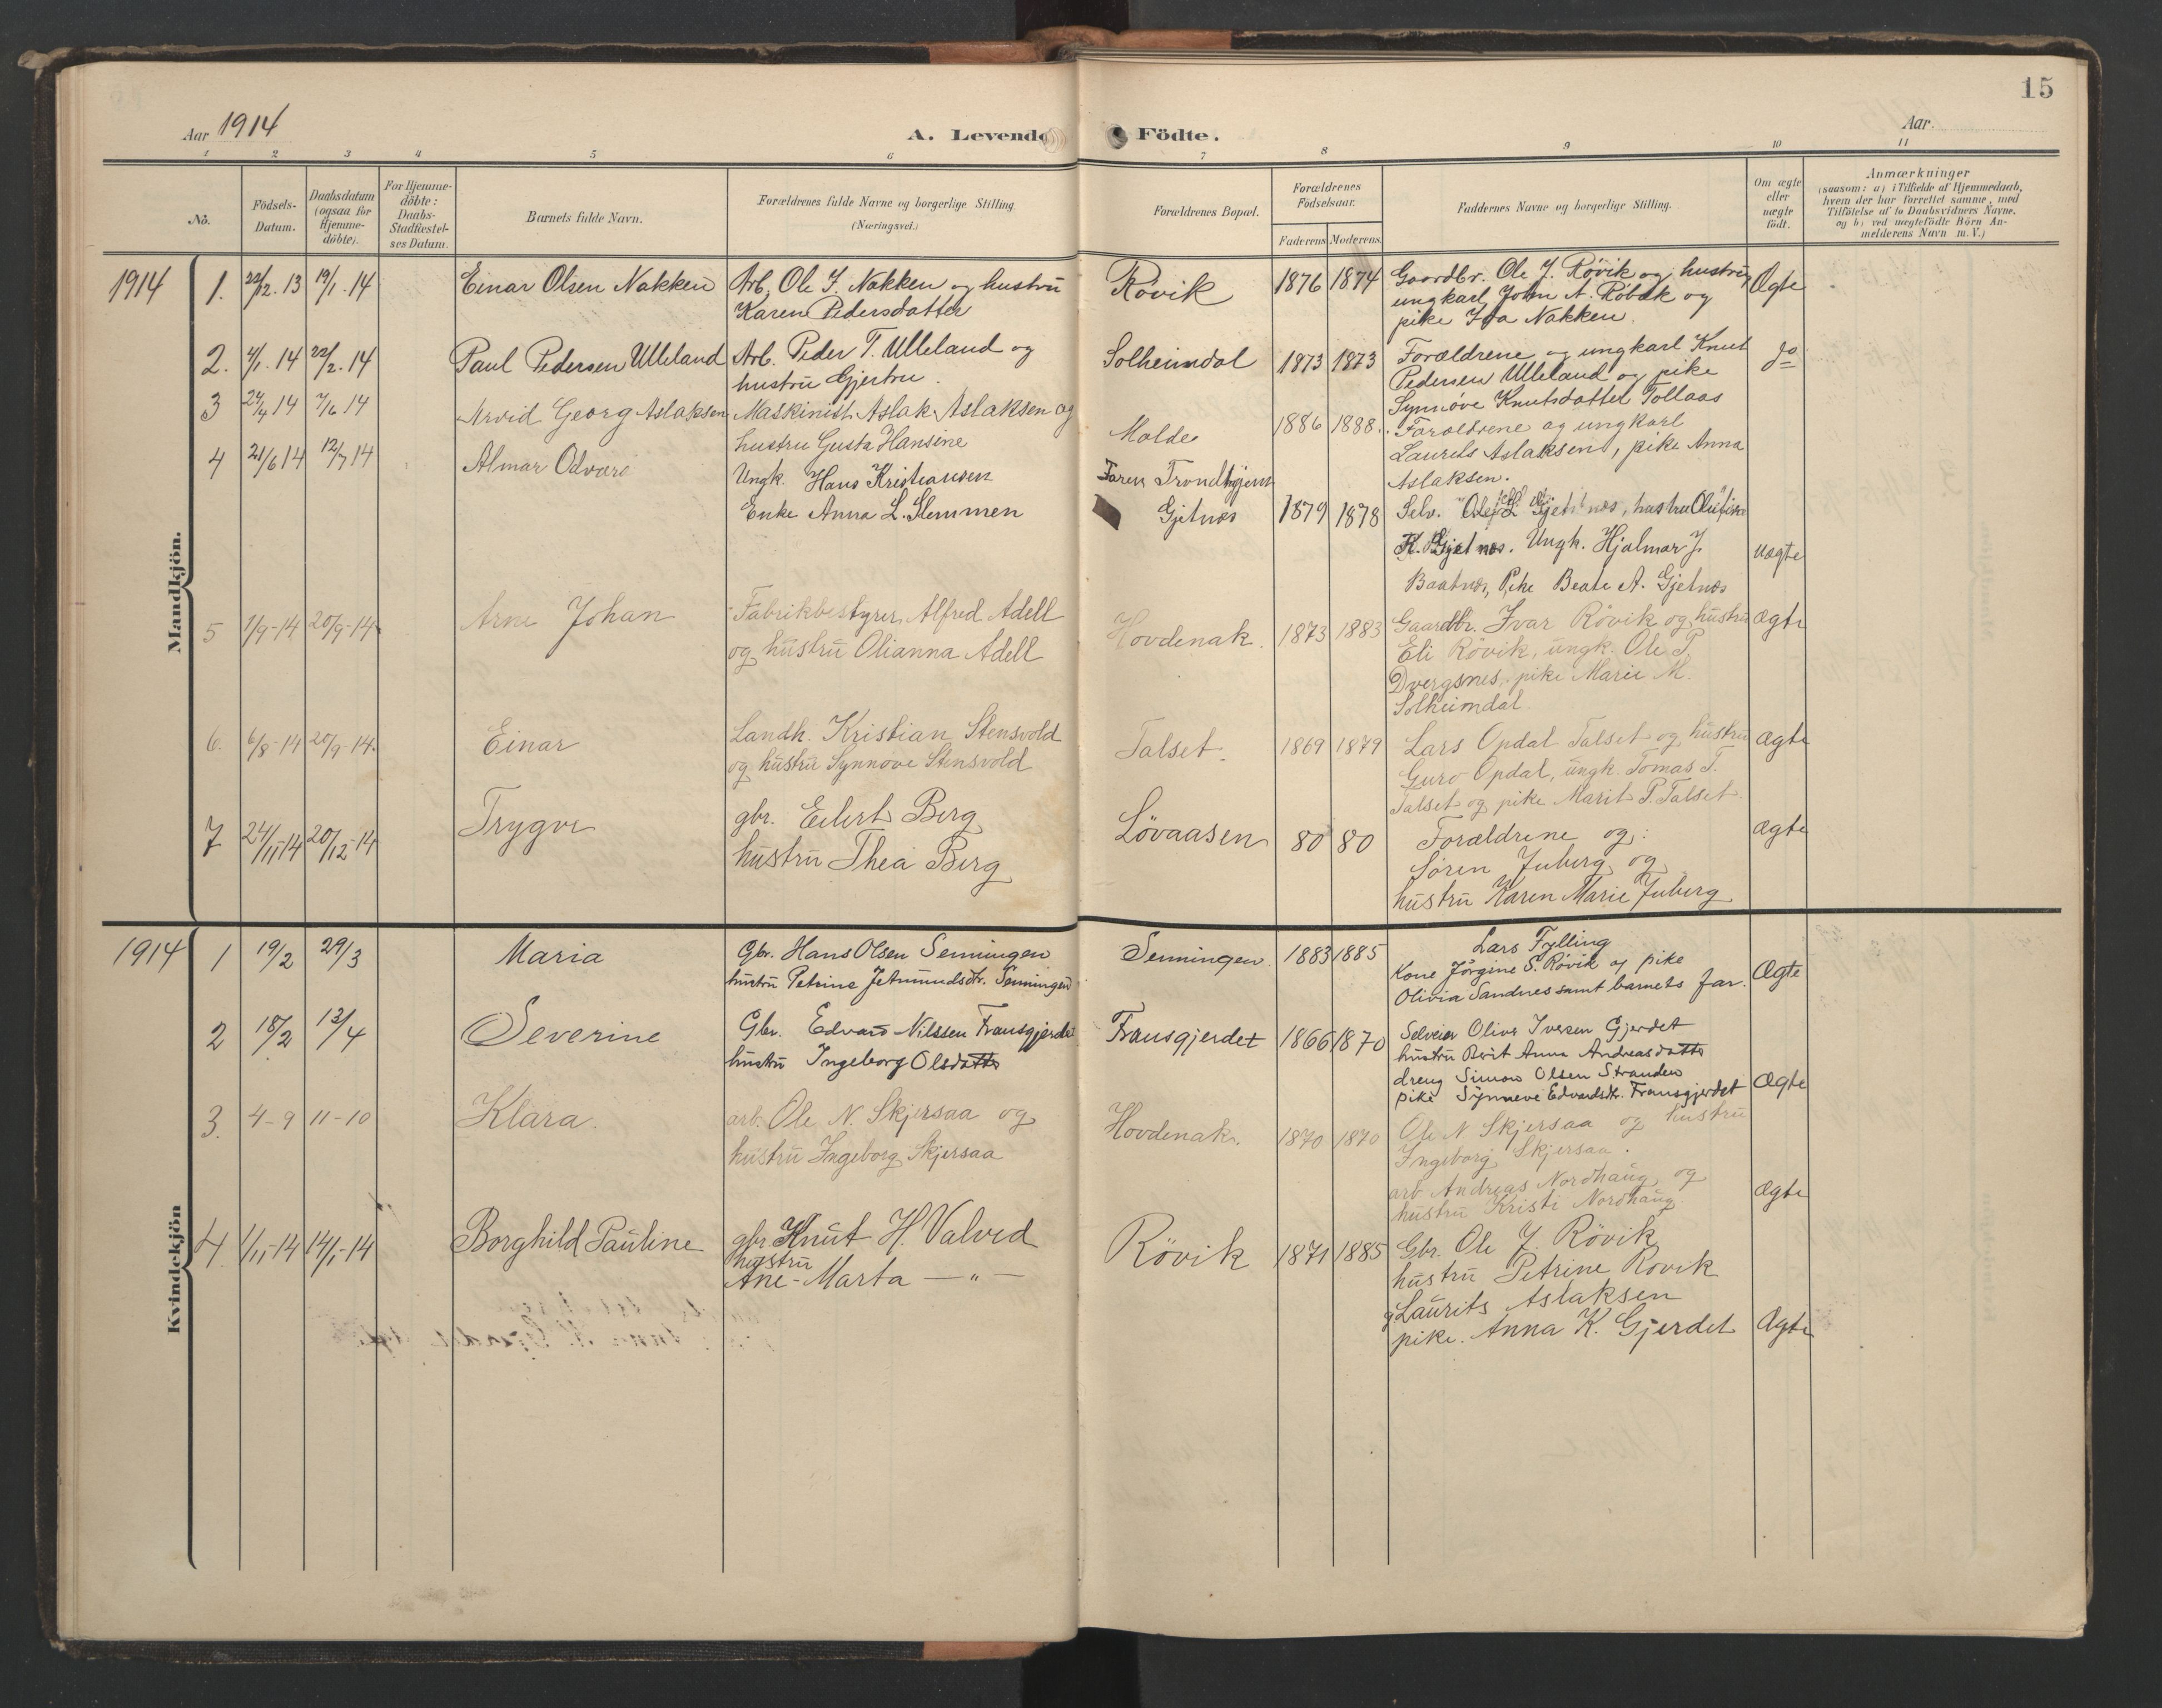 15
Aar 1914
A. Levende Födte.
Aar
1 2 3 4 5 6 7 8 9 10 11
No.
Födsels-Datum.
Daabsdatum (ogsaa for Hjemme-döbte).
For Hjemme-döbte: Daabs-Stadfæstel-ses Datum.
Barnets fulde Navn.
Forældrenes fulde Navne og borgerlige Stilling. (Næringsvei.)
Forældrenes Bopæl.
Forældrenes Födselsaar.
Faderens Moderens
Faddernes Navne og borgerlige Stilling.
Om ægte eller uægte födt.
Anmærkninger
(saasom: a) i Tilfælde af Hjemmedaab,
hvem der har forrettet samme, med
Tilföielse af to Daabsvidners Navne.
og b) ved uægtefödte Börn An-
melderens Navn m. V.)
Mandkjön.
1914 1. 22/12. 13 19/1. 14 Einar Olsen Nakken Arb. Ole J. Nakken og hustru
Karen Pedersdatter
Rövik 1876 1874 Gaardbr. Ole J. Rövik og hustru, Ægte
ungkarl John A. Röbæk og
pike Ida Nakken.
2. 4/1. 14 22/2. 14 Paul Pedersen Ulleland Arb. Peder T. Ulleland og
hustru Gjertru.
Solheimdal 1873 1873 Forældrene og ungkarl Knut do
Pedersen Ulleland og pike
Synnöve Knutsdatter Tollaas
3 24/4 14 7/6 14 Arvid Georg Aslaksen Maskinist Aslak Aslaksen og
hustru Gusta Hansine
Molde 1886 1888. Forældrene og ungkarl
Laurits Aslaksen, pike Anna
Aslaksen.
4 21/6 14 12/7 14 Almar Odvar Ungk. Hans Kristiansen
Enke Anna L. Slemmen
Faren Trondhjem
Gjetnes 1879 1878 Selv. Ole L. Gjetnes, hustru Olufine
K. Gjetnes. Ungk. Hjalmar J.
Baatnes, Pike Beate A. Gjetnes uægte
5 1/9-14 20/9-14 Arne Johan Fabrikbestyrer, Alfred Adell
og hustru Olianna Adell
Hovdenak. 1873 1883 Gaardbr. Ivar Rövik og hustru Ægte
Eli Rövik, ungk. Ole P.
Dvergsnes, pike Marie M.
Solheimdal.
6. 6/8-14 20/9-14. Einar Landh. Kristian Stensvold
og hustru Synnove Stensvold
Talset. 1869 1879 Lars Opdal Talset og hustru Ægte
Guro Opdal, ungk. Tomas T.
Talset og pike Marit P. Talset.
7 24/11-14 20/12-14 Trygve gbr. Eilert Berg
hustru Thea Berg
Lövaasen 80 80 Forældrene og: Ægte
Sören Juberg og
hustru Karen Marie Juberg
Kvindekjön
1914 1 19/2 29/3 Maria Gbr. Hans Olsen Senningen
hustru Petrine Jetmundsdtr. Senningen
Senningen 1883 1885 Lars Fylling
Kone Jörgine S. Rövik og pike Ægte
Olivia Sandnes samt barnets far.
2 18/2 13/4 Severine Gbr. Edvard Nilssen Fransgjerdet
hustru Ingeborg Olsdatter
Fransgjerdet 1866 1870 Selveier Oliver Iversen Gjerdet
hustru Berit Anna Andreasdatter
dreng Simon Olsen Stranden
pike Synneve Edvardsdtr. Fransgjerdet Ægte
3. 4-9 11-10 Klara. arb. Ole N. Skjersaa og
hustru Ingeborg Skjersaa
Hovdenak. 1870 1870 Ole N Skjersaa og hustru
Ingeborg Skjersaa.
arb Andreas Nordhaug og
hustru Kristi Nordhaug. Ægte
4. 1/11-14 14/1-14 Borghild Pauline gbr Knut H. Valved
hustru
Ane-Marta —"—
Rövik 1871 1885 Gbr. Ole J. Rövik
hustru Petrine Rovik
g Laurits Aslaksen
pike. Anna K. Gjerdet Ægte